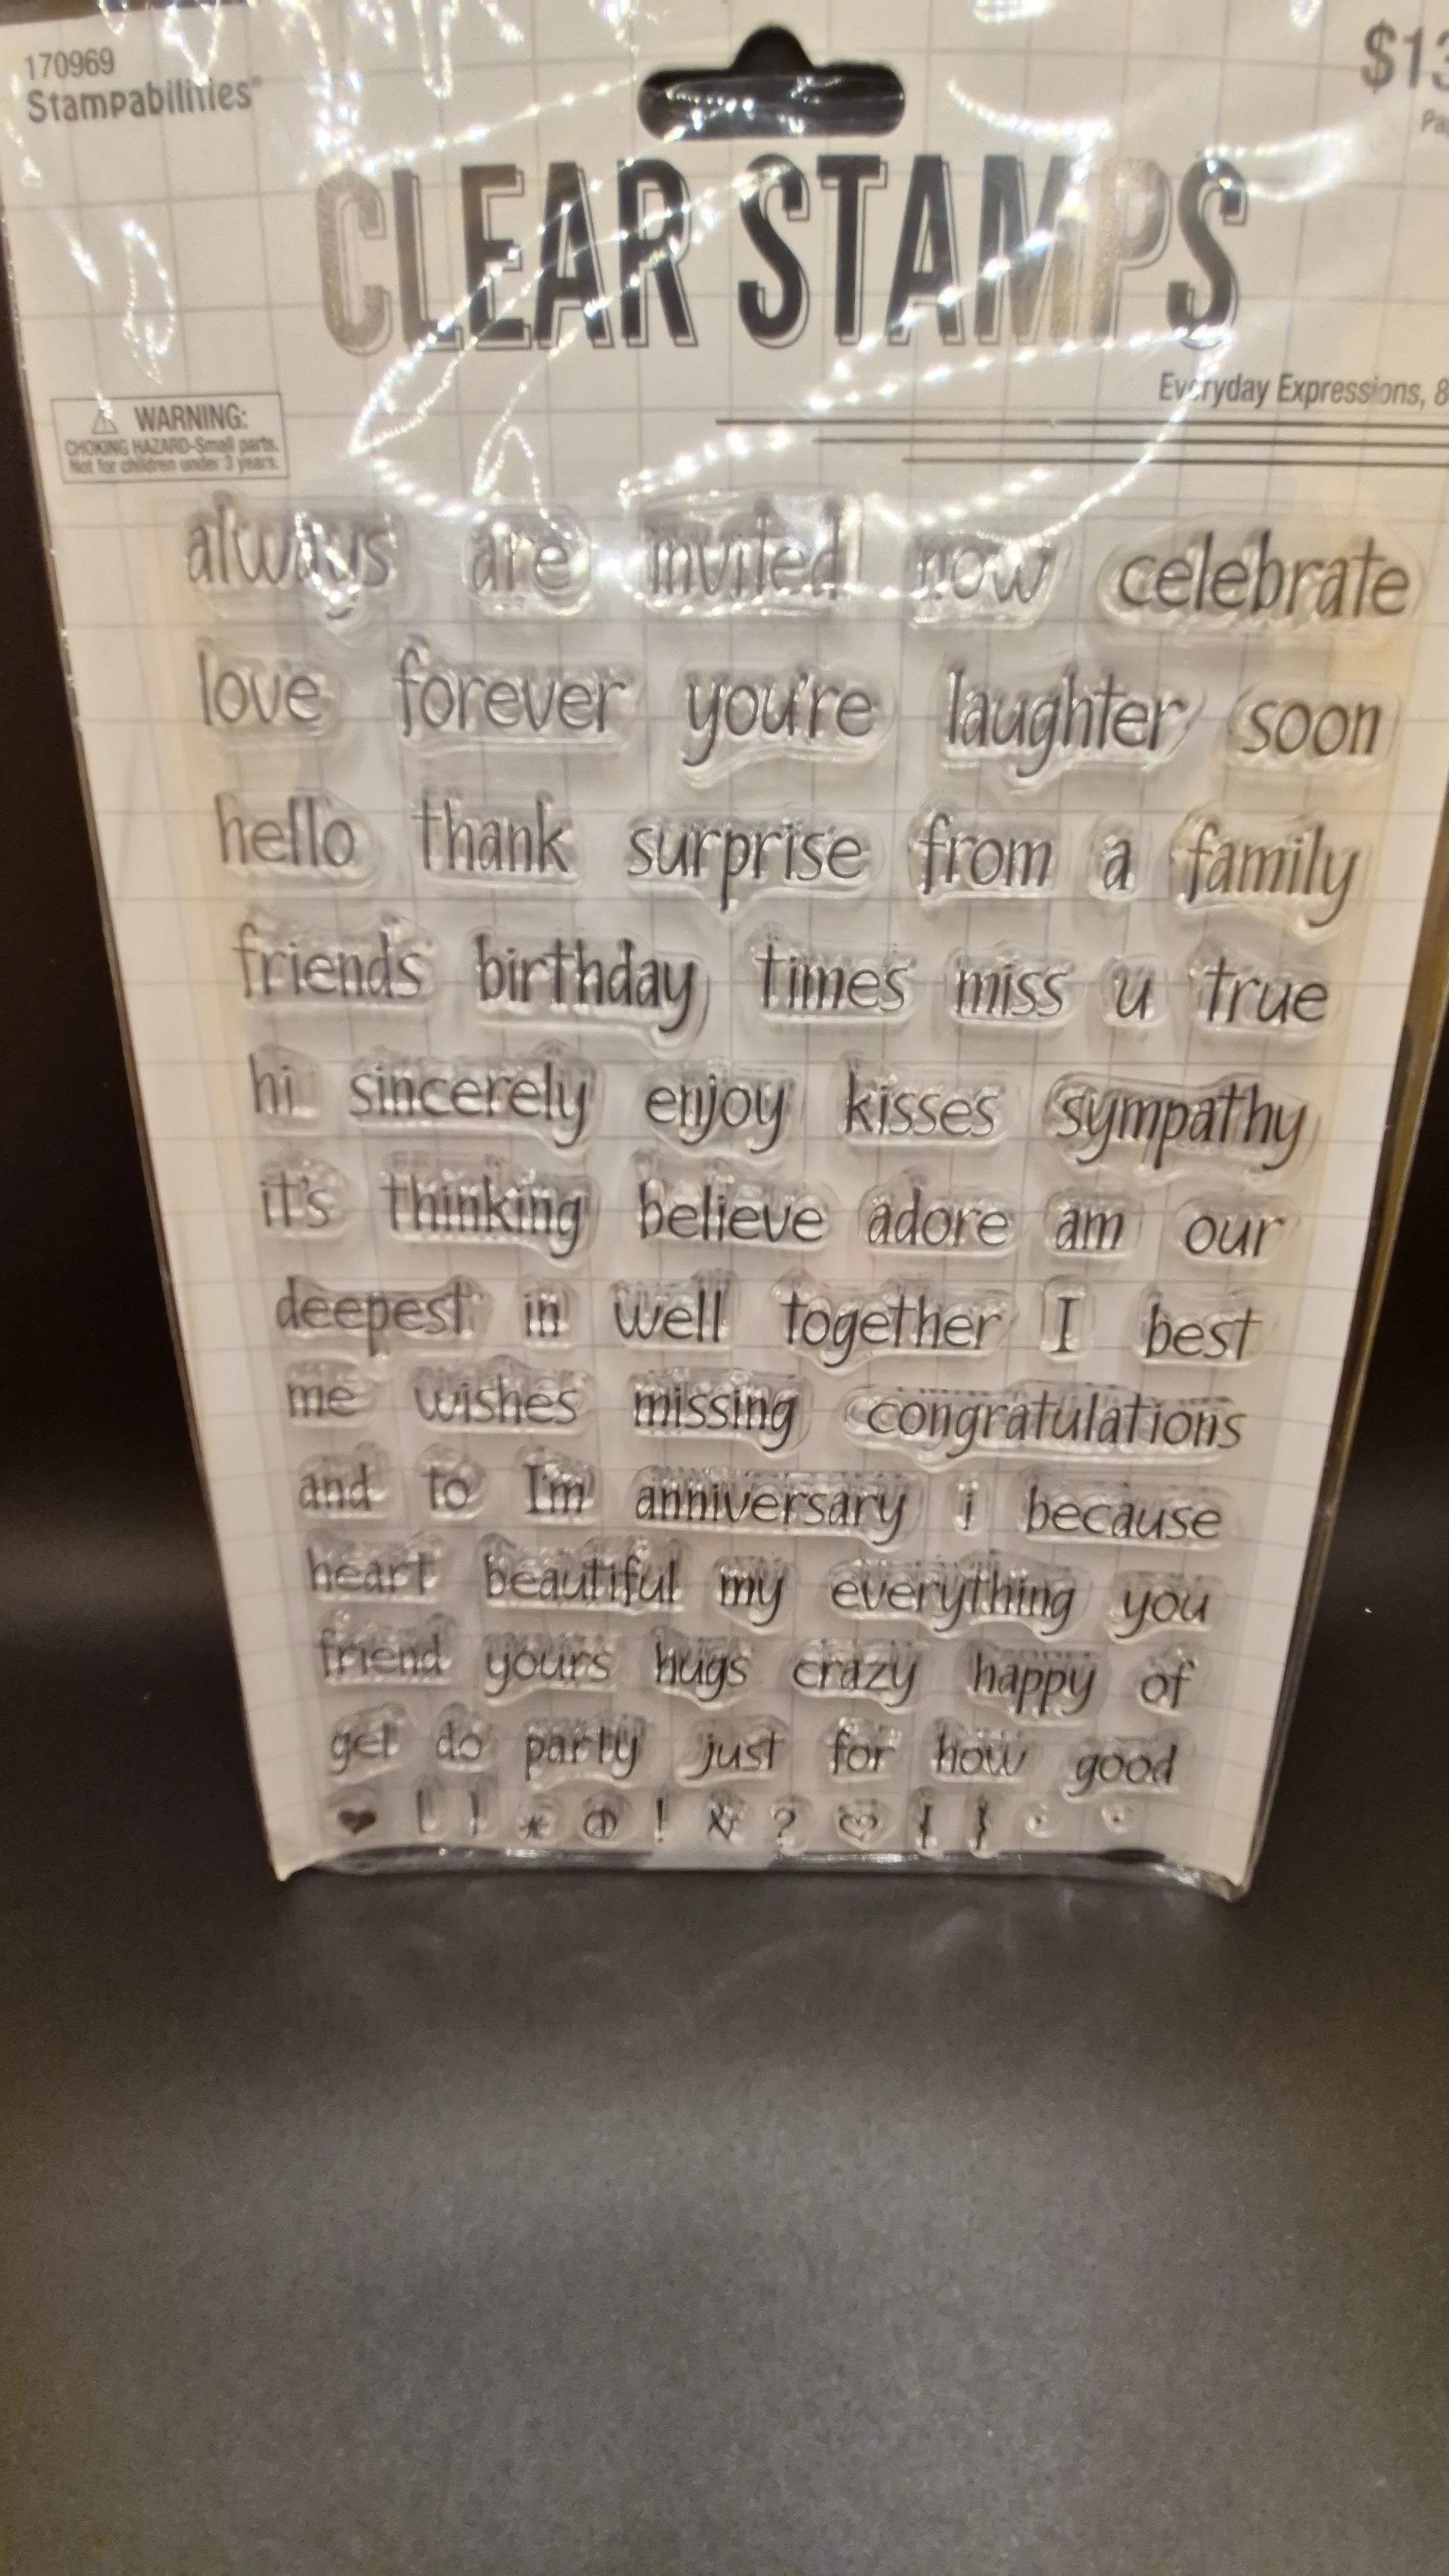 170969
$13
Stampabilities®
Pa
CLEAR STAMPS
Everyday Expressions, 8
⚠ WARNING:
CHOKING HAZARD-Small parts.
Not for children under 3 years.
always are invited now celebrate
love forever you're laughter soon
hello thank surprise from a family
friends birthday times miss u true
hi sincerely enjoy kisses sympathy
it's thinking believe adore am our
deepest in well together I best
me wishes missing congratulations
and to I'm anniversary i because
heart beautiful my everything you
friend yours hugs crazy happy of
get do party just for how good
! & ?